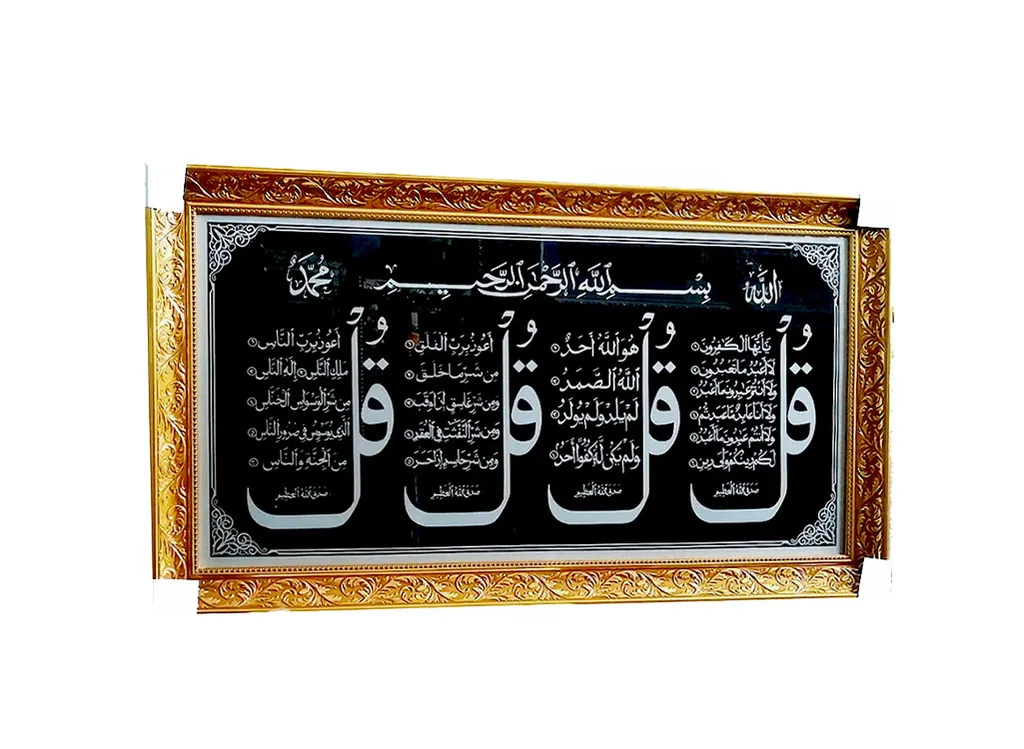 الله
بِسْمِ اللهِ الرَّحْمٰنِ الرَّحِيمِ
مُحَمَّدٌ
قُلْ
يَا أَيُّهَا الْكَفِرُونَ
لَا أَعْبُدُ مَا تَعْبُدُونَ
وَلَا أَنْتُمْ عَبِدُونَ مَا أَعْبُدُ
وَلَا أَنَا عَابِدٌ مَّا عَبَدْتُمْ
وَلَا أَنْتُمْ عَبِدُونَ مَا أَعْبُدُ
لَكُمْ دِينُكُمْ وَلِيَ دِينِ
صدق الله العظيم
قُلْ
هُوَ اللهُ أَحَدٌ
اللهُ الصَّمَدُ
لَمْ يَلِدْ وَلَمْ يُولَدْ
وَلَمْ يَكُنْ لَهُ كُفُوًا أَحَدٌ
صدق الله العظيم
قُلْ
أَعُوذُ بِرَبِّ الْفَلَقِ
مِن شَرِّ مَا خَلَقَ
وَمِن شَرِّ غَاسِقٍ إِذَا وَقَبَ
وَمِن شَرِّ النَّفَّثَتِ فِي الْعُقَدِ
وَمِن شَرِّ حَاسِدٍ إِذَا حَسَدَ
صدق الله العظيم
قُلْ
أَعُوذُ بِرَبِّ النَّاسِ
مَلِكِ النَّاسِ إِلَهِ النَّاسِ
مِن شَرِّ الْوَسْوَاسِ الْخَنَّاسِ
الَّذِي يُوَسْوِسُ فِي صُدُورِ النَّاسِ
مِنَ الْجِنَّةِ وَالنَّاسِ
صدق الله العظيم